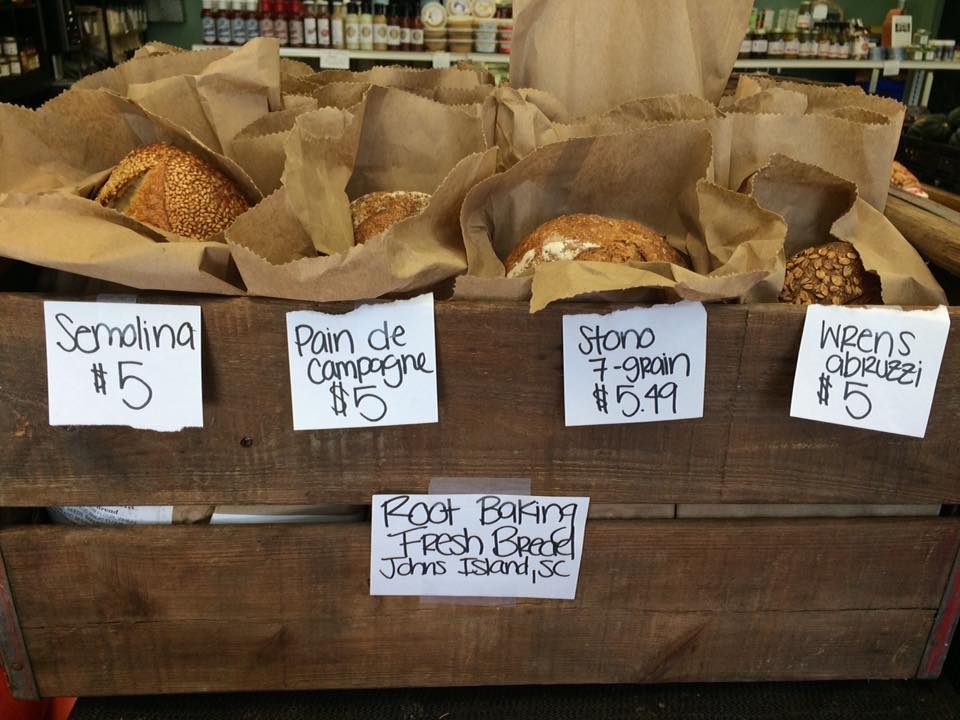 Semolina
$5
Pain de
campagne
$5
Stono
7-grain
$5.49
WRENS
abruzzi
$5
Root Baking
Fresh Bread
Johns Island, SC